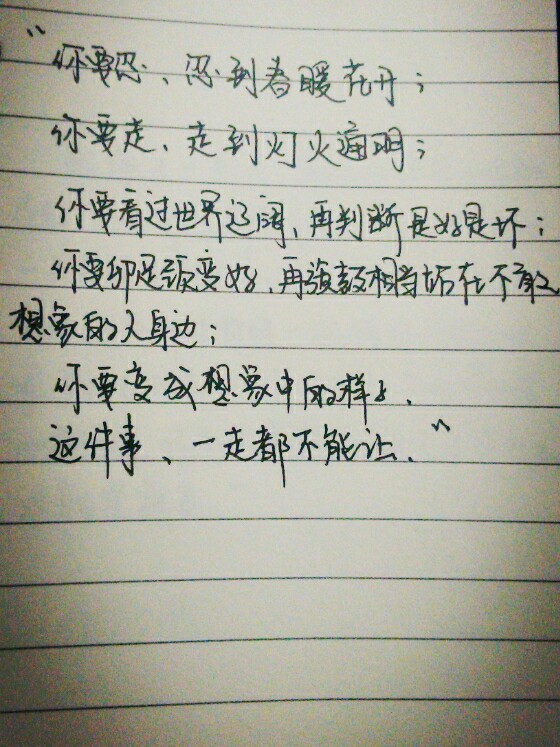 “你要忍、忍到春暖花开；
你要走、走到灯火通明；
你要看过世界辽阔、再判断是好是坏；
你要卯足劲变好、再旗鼓相当站在不敢
想象的人身边；
你要变成想象中的样子、
这件事、一走都不能让、”